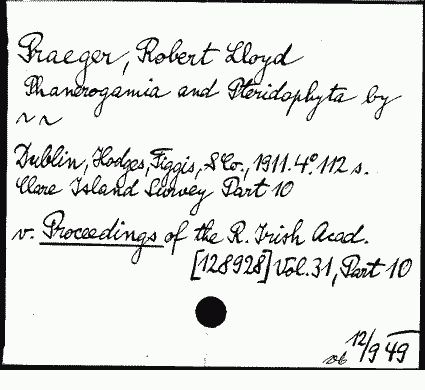 Praeger, Robert Lloyd
Phanerogamia and Pteridophyta by
~ ~
Dublin, Hodges, Figgis, & Co., 1911. 4°. 112 s.
Clare Island Survey Part 10
v. Proceedings of the R. Irish Acad.
[128928] Vol. 31, Part 10
12/9 49